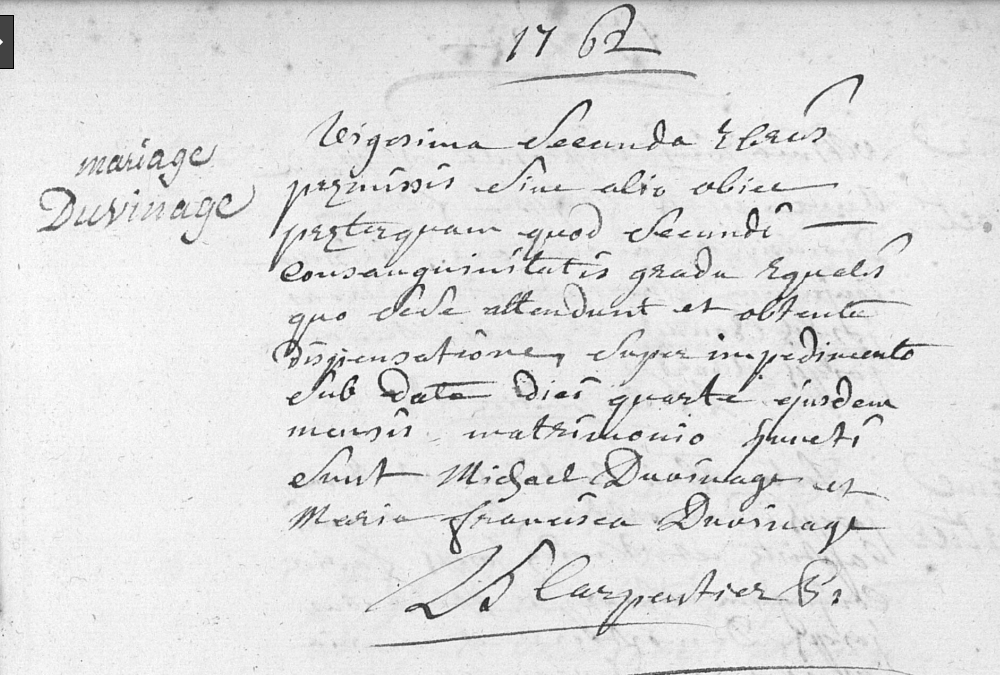 1762
mariage
Duvinage
Vigesima Secunda
premissis sine alio obice
preterquam quod Secundi
Consanguinitatis gradu equalis
quo sese attendunt et obtenta
dispensatione, super impedimento
sub data diei quarte ejusdem
mensis matrimonio juncti
sunt Michael Duvinage et
Maria francisca Duvinage
Carpentier